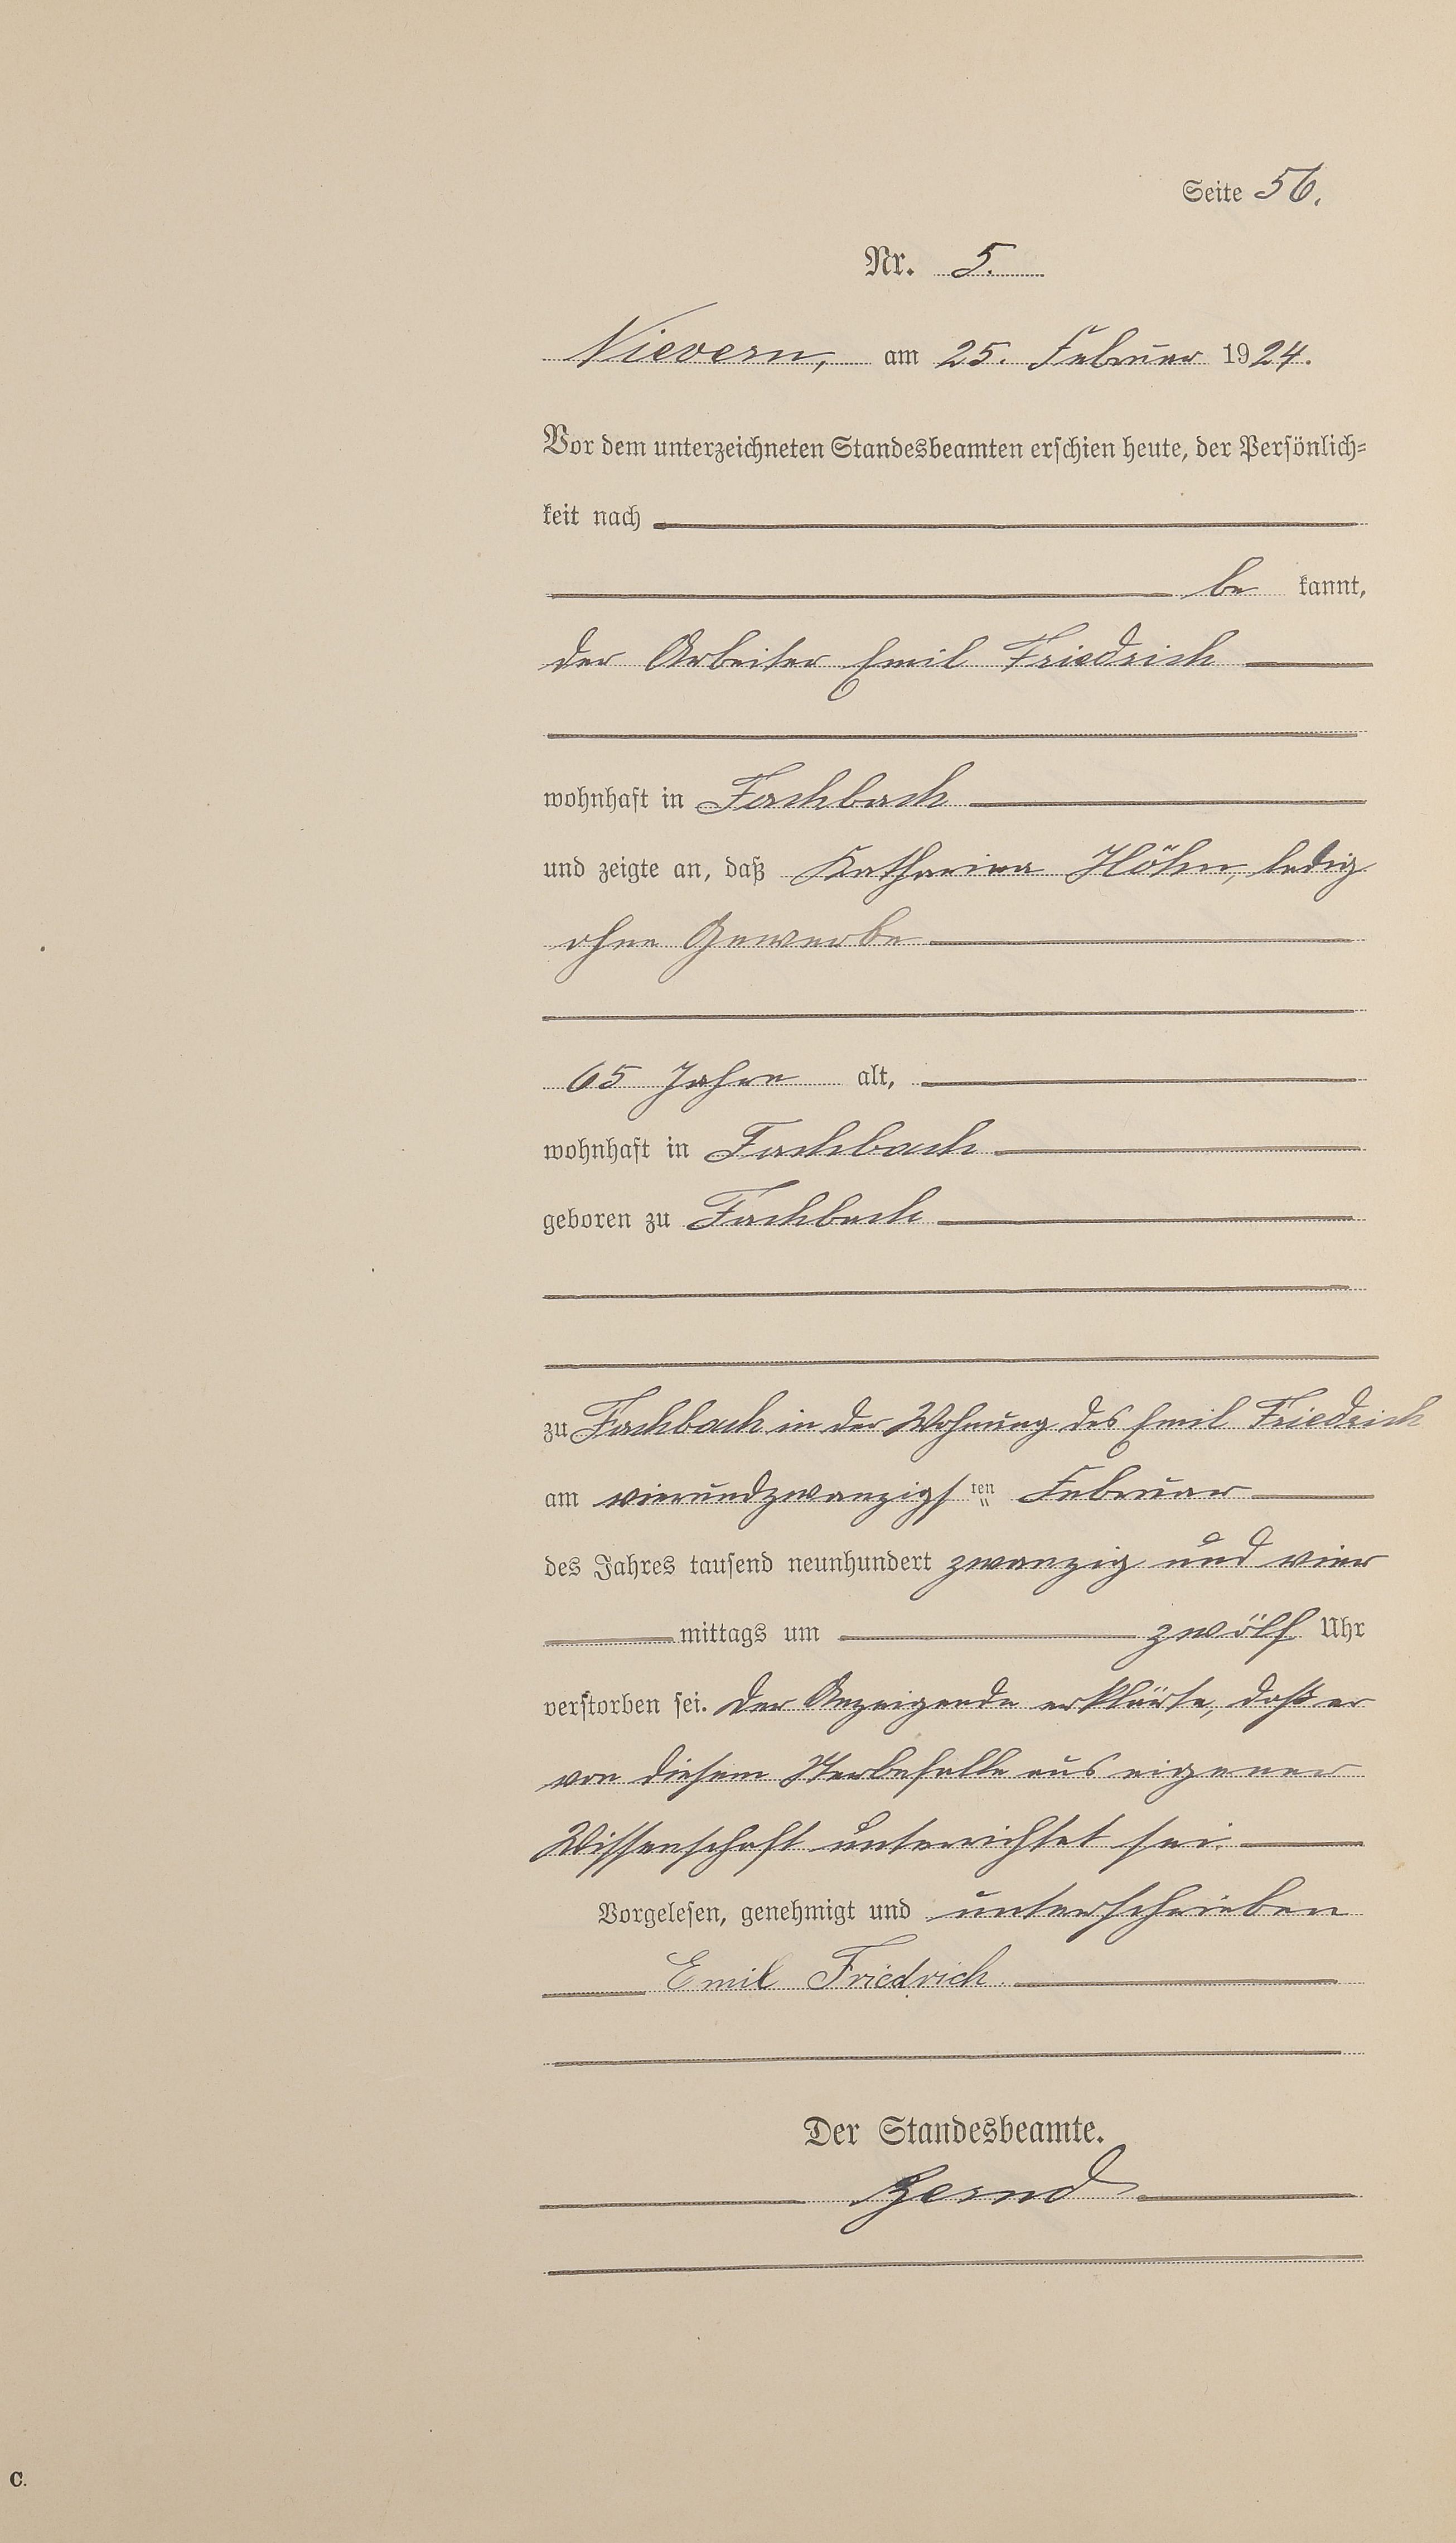 Seite 56.
Nr. 5.
Nievern, am 25. Februar 1924.
Vor dem unterzeichneten Standesbeamten erschien heute, der Persönlich-
keit nach
be kannt,
der Arbeiter Emil Friedrich
wohnhaft in Fachbach
und zeigte an, daß Katharina Höhn, ledig
ohne Gewerbe
65 Jahre alt,
wohnhaft in Fachbach
geboren zu Fachbach
zu Fachbach in der Wohnung des Emil Friedrich
am vierundzwanzigs ten Februar
des Jahres tausend neunhundert zwanzig und vier
mittags um zwölf Uhr
verstorben sei. Der Anzeigende erklärte, daß er
von diesem Sterbefalle aus eigener
Wissenschaft unterrichtet sei.
Vorgelesen, genehmigt und unterschrieben
Emil Friedrich.
Der Standesbeamte.
C.